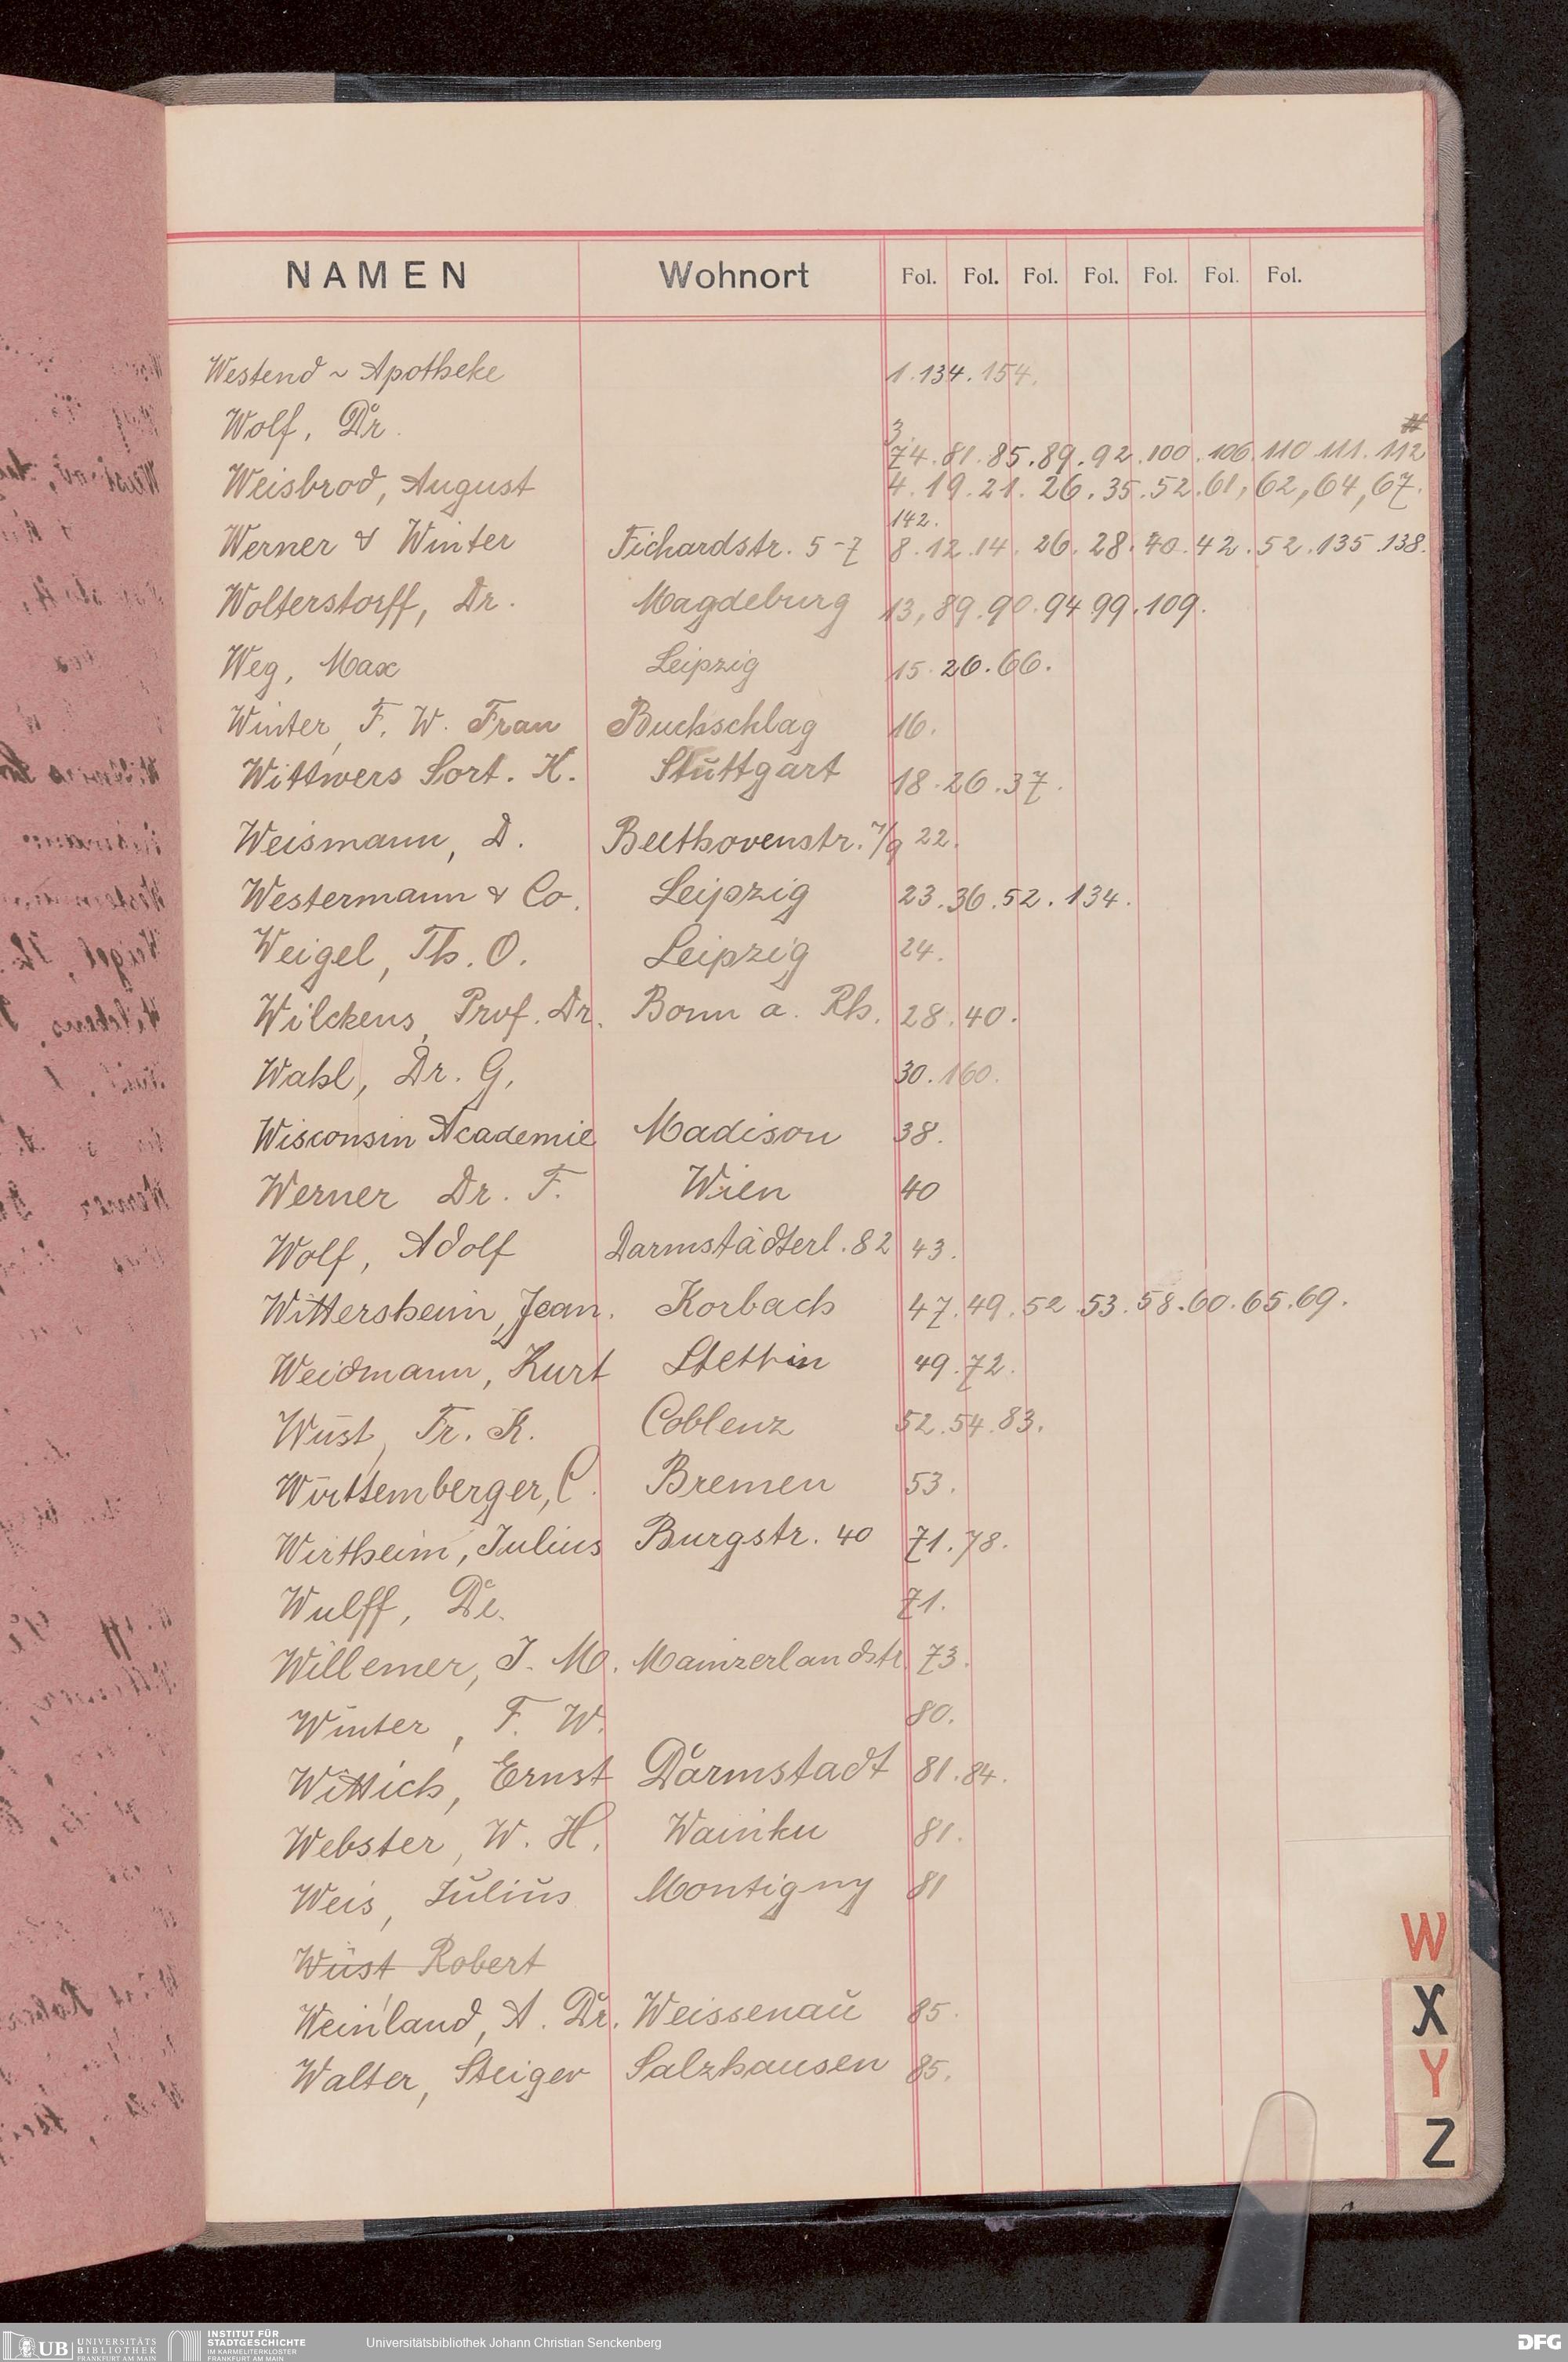 NAMEN Wohnort Fol. Fol. Fol. Fol. Fol. Fol. Fol.
Westend ~ Apotheke 1. 134. 154.
Wolf, Dr. 3
74. 81. 85. 89. 92. 100. 106. 110. 111. 112
Weisbrod, August 4. 19. 21. 26. 35. 52. 61, 62, 64, 67.
142.
Werner & Winter Fichardstr. 5-7 8. 12. 14. 26. 28. 40. 42. 52. 135. 138.
Wolterstorff, Dr. Magdeburg 13, 89. 90. 94 99. 109.
Weg, Max Leipzig 15. 26. 66.
Winter, F. W. Frau Buchschlag 16.
Wittwers Sort. K. Stuttgart 18. 26. 37.
Weismann, D. Beethovenstr. 7/9 22.
Westermann & Co. Leipzig 23. 36. 52. 134.
Weigel, Th. O. Leipzig 24.
Wilckens, Prof. Dr. Bonn a. Rh. 28. 40.
Wahl, Dr. G. 30. 160.
Wisconsin Academie Madison 38.
Werner Dr. F. Wien 40
Wolf, Adolf Darmstädterl. 82 43.
Wittersheim, Jean. Korbach 47. 49. 52. 53. 58. 60. 65. 69.
Weidmann, Kurt Stettin 49. 72.
Wüst, Fr. K. Coblenz 52. 54. 83.
Württemberger, C. Bremen 53.
Wirtheim, Julius Burgstr. 40 71. 78.
Wulff, Dr. 71.
Willemer, J. M. Mainzerlandstr. 73.
Winter, F. W. 80.
Wittich, Ernst Darmstadt 81. 84.
Webster, W. H. Wainku 81.
Weis, Julius Montigny 81
Wüst Robert
Weinland, A. Dr. Weissenau 85.
Walter, Steiger Salzhausen 85.
W
X
Y
Z
UB UNIVERSITÄTS
BIBLIOTHEK
FRANKFURT AM MAIN
INSTITUT FÜR
STADTGESCHICHTE
IM KARMELITERKLOSTER
FRANKFURT AM MAIN
Universitätsbibliothek Johann Christian Senckenberg
DFG